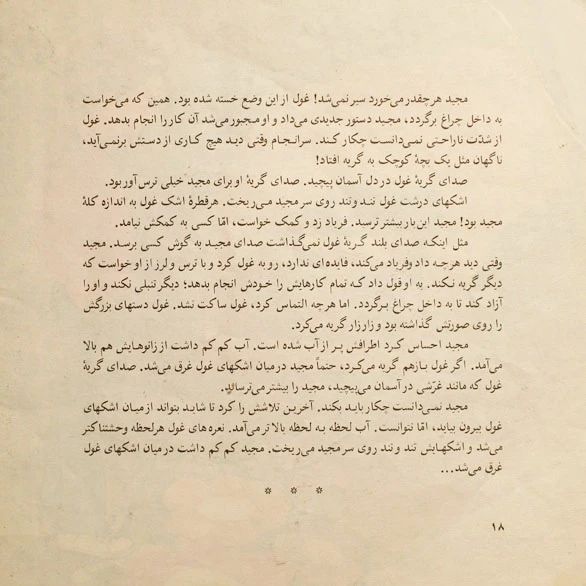 مجید هر چقدر می‌خورد سیر نمی‌شد! غول از این وضع خسته شده بود. همین که می‌خواست
به داخل چراغ برگردد، مجید دستور جدیدی می‌داد و او مجبور می‌شد آن کار را انجام بدهد. غول
از شدّت ناراحتی نمی‌دانست چکار کند. سرانجام وقتی دید هیچ کاری از دستش برنمی‌آید،
ناگهان مثل یک بچهٔ کوچک به گریه افتاد!
صدای گریهٔ غول در دل آسمان پیچید. صدای گریهٔ او برای مجید خیلی ترس‌آور بود.
اشکهای درشت غول تند و تند روی سر مجید می‌ریخت. هر قطرهٔ اشک غول به اندازه کلهٔ
مجید بود! مجید این بار بیشتر ترسید. فریاد زد و کمک خواست، امّا کسی به کمکش نیامد.
مثل اینکه صدای بلند گریهٔ غول نمی‌گذاشت صدای مجید به گوش کسی برسد. مجید
وقتی دید هرچه داد و فریاد می‌کند، فایده‌ای ندارد، رو به غول کرد و با ترس و لرز از او خواست که
دیگر گریه نکند. به او قول داد که تمام کارهایش را خودش انجام بدهد؛ دیگر تنبلی نکند و او را
آزاد کند تا به داخل چراغ برگردد. اما هرچه التماس کرد، غول ساکت نشد. غول دستهای بزرگش
را روی صورتش گذاشته بود و زار زار گریه می‌کرد.
مجید احساس کرد اطرافش پر از آب شده است. آب کم کم داشت از زانوهایش هم بالا
می‌آمد. اگر غول بازهم گریه می‌کرد، حتماً مجید در میان اشکهای غول غرق می‌شد. صدای گریهٔ
غول که مانند غرّشی در آسمان می‌پیچید، مجید را بیشتر می‌ترساند.
مجید نمی‌دانست چکار باید بکند. آخرین تلاشش را کرد تا شاید بتواند از میان اشکهای
غول بیرون بیاید، امّا نتوانست. آب لحظه به لحظه بالاتر می‌آمد. نعره‌های غول هر لحظه وحشتناکتر
می‌شد و اشکهایش تند و تند روی سر مجید می‌ریخت. مجید کم کم داشت در میان اشکهای غول
غرق می‌شد...
* * *
۱۸